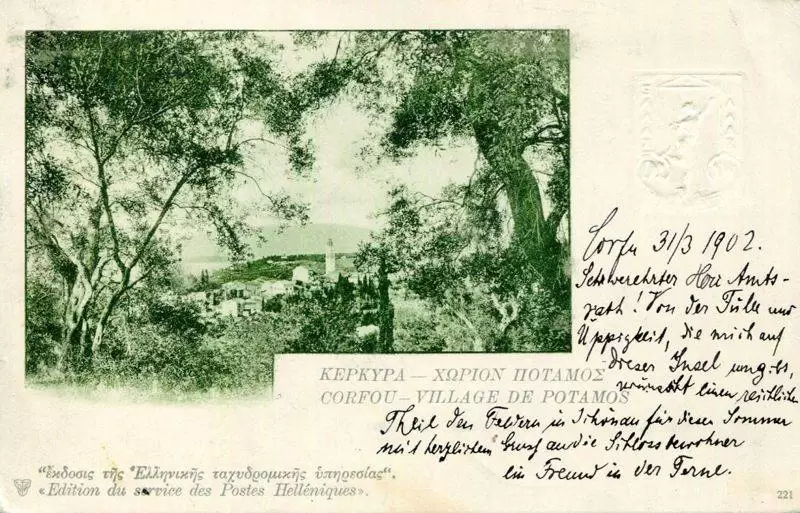 ΕΛΛΑΣ
Corfu 31/3 1902.
Sehrverehrter Herr Amts-
rath! Von der Fülle und
Üppigkeit, die mich auf
dieser Insel umgibt,
wünscht einen reichlichen
ΚΕΡΚΥΡΑ — ΧΩΡΙΟΝ ΠΟΤΑΜΟΣ
CORFOU — VILLAGE DE POTAMOS
Theil den Feldern in Schönau für diesen Sommer
mit herzlichem Gruß an die Schlossbewohner
ein Freund in der Ferne.
"ἔκδοσις τῆς Ἑλληνικῆς ταχυδρομικῆς ὑπηρεσίας".
«Edition du service des Postes Helléniques».
221